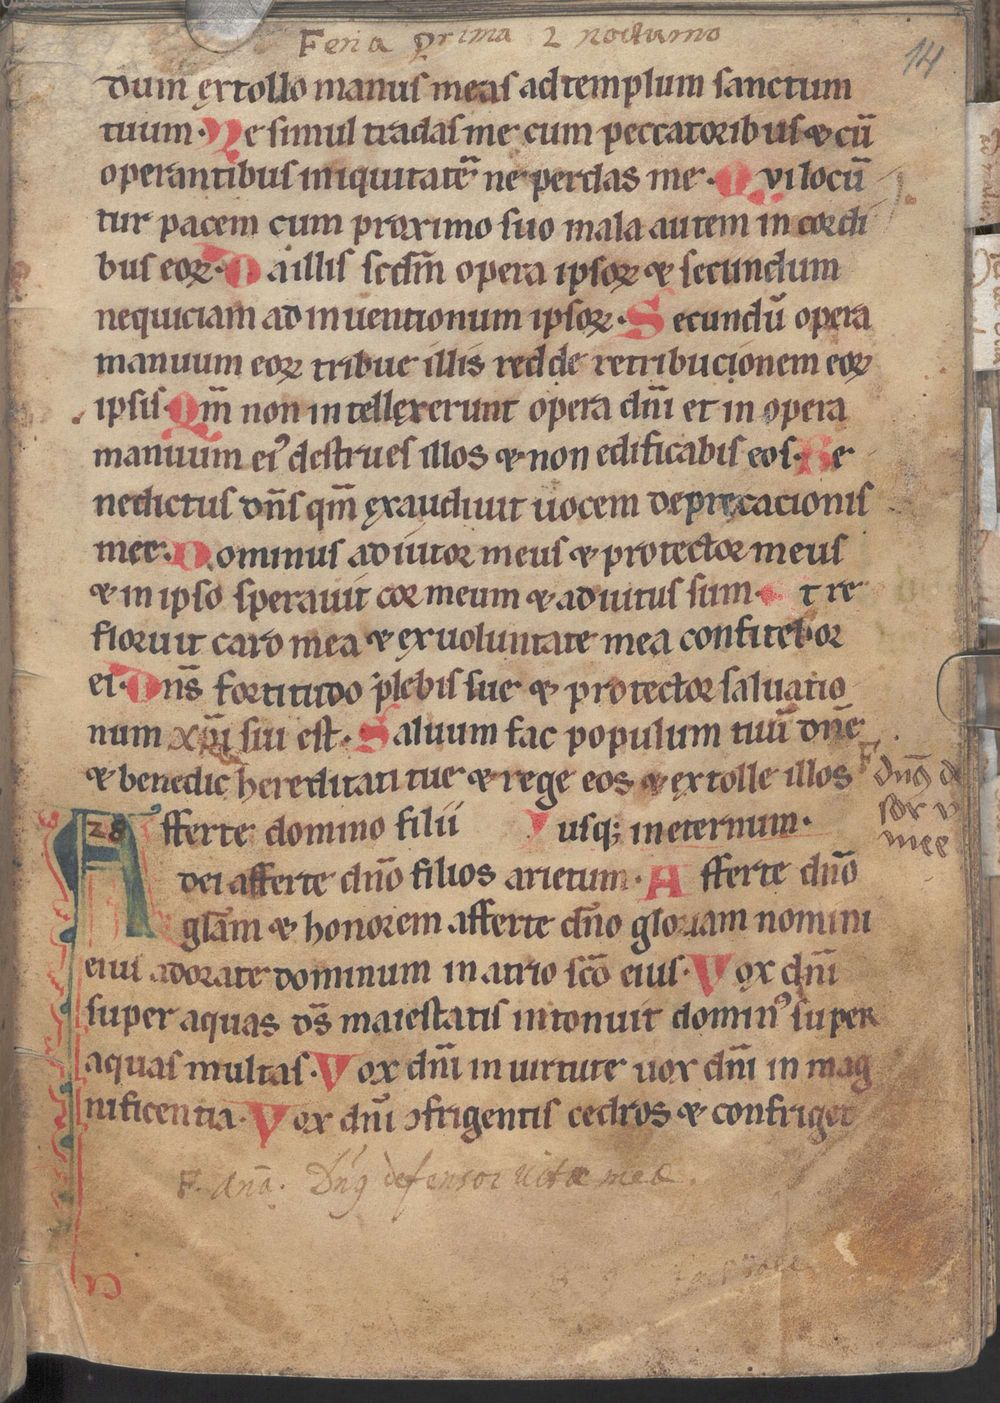 Feria prima 2 nocturno
14
dum extollo manus meas ad templum sanctum
tuum. Ne simul tradas me cum peccatorib us & cũ
operantibus iniquitatē ne perdas me. Qvi locū
tur pacem cum proximo suo mala autem in cordi
bus eoꝝ. Da illis scdm̄ opera ipsoꝝ & secundum
nequiciam adinuentionum ipsoꝝ. Secundū opera
manuum eoꝝ tribue illis redde retribucionem eoꝝ
ipsis. Qm̄ non intellexerunt opera dn̄i et in opera
manuum eiꝰ destrues illos & non edificabis eos. Be
nedictus dn̄s qm̄ exaudiuit uocem deprecacionis
mee. Dominus adiutor meus & protector meus
& in ipso sperauit cor meum & adiutus sum. Et re
floruit caro mea & ex uoluntate mea confitebor
ei. Dn̄s fortitudo plebis sue & protector saluatio
num xp̄i sui est. Saluum fac populum tuū dn̄e
& benedic hereditati tue & rege eos & extolle illos
F dn̄ꝰ de
sor v
mee
28 Afferte domino filii usqꝫ in eternum.
dei afferte dn̄o filios arietum. Afferte dn̄o
gl̄am & honorem afferte dn̄o gloriam nomini
eius adorate dominum in atrio sc̄o eius. Vox dn̄i
super aquas ds̄ maiestatis intonuit dominꝰ super
aquas multas. Vox dn̄i in uirtute uox dn̄i in mag
nificentia. Vox dn̄i ꝯfrigentis cedros & confriget
F. Anã. Dn̄ꝰ defensor uitæ meæ.